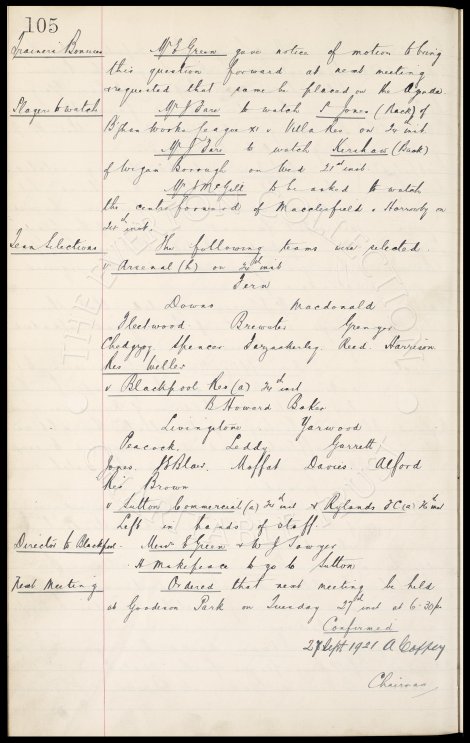 105
Trainers Bonuses Mr E Green gave notice of motion to bring
this question forward at next meeting
& requested that same be placed on the Agenda
Players to watch Mr J Fare to watch S. Jones (Back) of
B'Shea Works League XI v Villa Res on 24th inst
Mr J Fare to watch Kershaw (Back)
of Wigan Borough on Wed 21st inst.
Mr J McGill to be asked to watch
the centre forward of Macclesfield v Harrowby on
24th inst.
Team Selections The following teams were selected.
v Arsenal (h) on 24th inst
Fern
Downs Macdonald
Fleetwood Brewster Grenyer
Chedgzoy Spencer Reed. Harrison
Res Weller
v Blackpool Res (a) 24th inst
B. Howard Baker
Livingstone Yarwood
Peacock Leddy Garrett
Jones. Blair. Moffat Davies. Alford
Res Brown
v Sutton Commercial (a) 24th inst & Rylands FC (a) inst
Left in hands of staff
Director to Blackpool. Messrs E Green & W J Sawyer
A Makepeace to go to Sutton
Next Meeting Ordered that next meeting be held
at Goodison Park on Tuesday 27th inst at 6-30pm
Confirmed
27 Sept 1921 A Coffey
Chairman